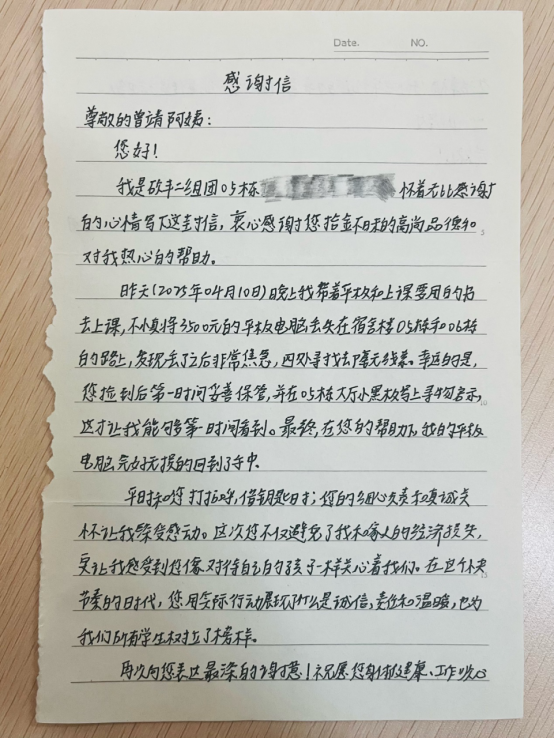 Date. NO.
感谢信
尊敬的曾靖阿姨：
您好！
我是砍丰二组团05栋 怀着无比感谢
的心情写下这封信，衷心感谢您拾金不昧的高尚品德和
5
对我热心的帮助。
昨天(2025年04月10日)晚上我带着平板和上课要用的书
去上课，不慎将3500元的平板电脑丢失在宿舍楼05栋和06栋
的路上，发现丢了之后非常焦急，四处寻找去毫无线索。幸运的是，
您捡到后第一时间妥善保管，并在05栋大厅小黑板写上寻物启示，
10
这才让我能够第一时间看到。最终，在您的帮助下，我的平板
电脑完好无损的回到了手中。
平时和您打招呼，借钥匙时；您的细心负责和真诚关
怀让我深受感动。这次您不仅避免了我和家人的经济损失，
更让我感受到您像对待自己的孩子一样关心着我们。在这个快
15
节奏的日时代，您用实际行动展现了什么是诚信，责任和温暖，也为
我们所有学生树立了榜样。
再次向您表达最深的谢意！祝愿您身体健康、工作顺心